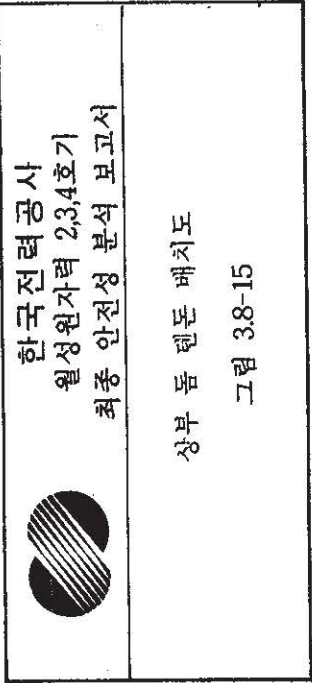 한국전력공사
월성원자력 2,3,4호기
최종 안전성 분석 보고서
상부 돔 텐돈 배치도
그림 3.8-15